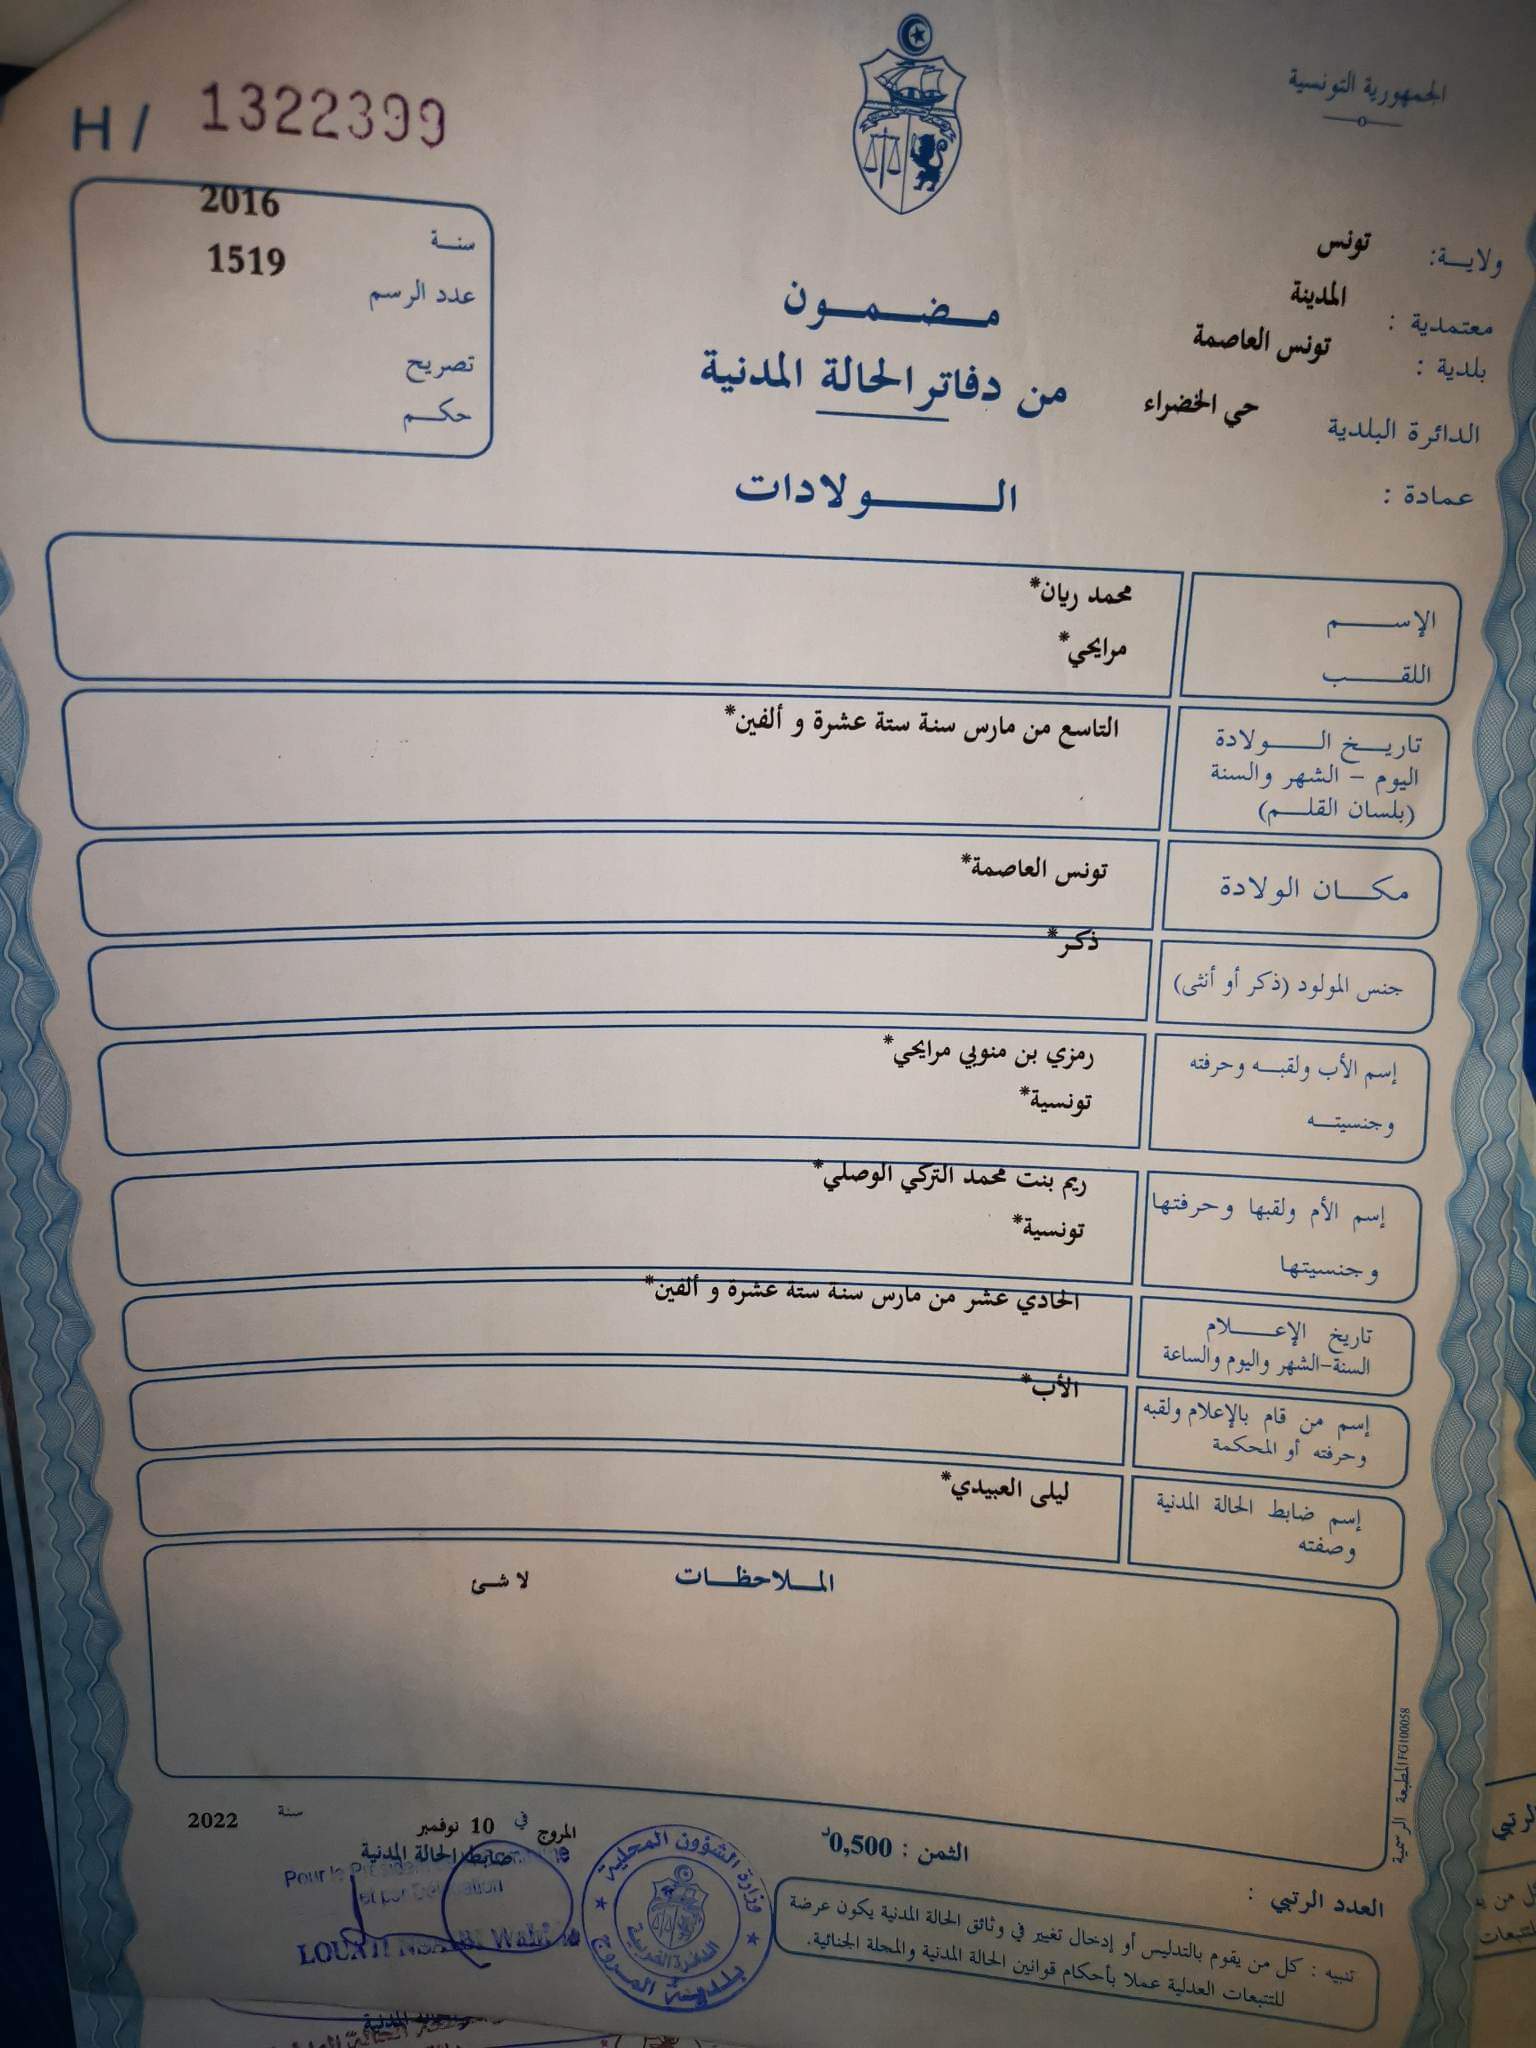 H / 1322399
الجمهورية التونسية
سنة 2016
عدد الرسم 1519
تصريح
حكم
ولاية: تونس
معتمدية : المدينة
بلدية : تونس العاصمة
الدائرة البلدية حي الخضراء
عمادة :
مضمون
من دفاتر الحالة المدنية
الولادات
الإسم محمد ريان*
اللقب مرايحي*
تاريخ الولادة التاسع من مارس سنة ستة عشرة و ألفين*
اليوم - الشهر والسنة
(بلسان القلم)
مكان الولادة تونس العاصمة*
جنس المولود (ذكر أو أنثى) ذكر*
إسم الأب ولقبه وحرفته رمزي بن منوبي مرايحي*
وجنسيته تونسية*
إسم الأم ولقبها وحرفتها ريم بنت محمد التركي الوصلي*
وجنسيتها تونسية*
تاريخ الإعلام الحادي عشر من مارس سنة ستة عشرة و ألفين*
السنة-الشهر واليوم والساعة
إسم من قام بالإعلام ولقبه الأب*
وحرفته أو المحكمة
إسم ضابط الحالة المدنية ليلى العبيدي*
وصفته
الملاحظات لا شئ
المطبعة الرسمية FG100058
المروج في 10 نوفمبر سنة 2022
الثمن : 0,500د
ضابط الحالة المدنية
العدد الرتبي :
تنبيه : كل من يقوم بالتدليس أو إدخال تغيير في وثائق الحالة المدنية يكون عرضة
للتتبعات العدلية عملا بأحكام قوانين الحالة المدنية والمجلة الجنائية.
وزارة الشؤون المحلية
بلدية المروج
Pour le Président
et par Délégation
LOUATI